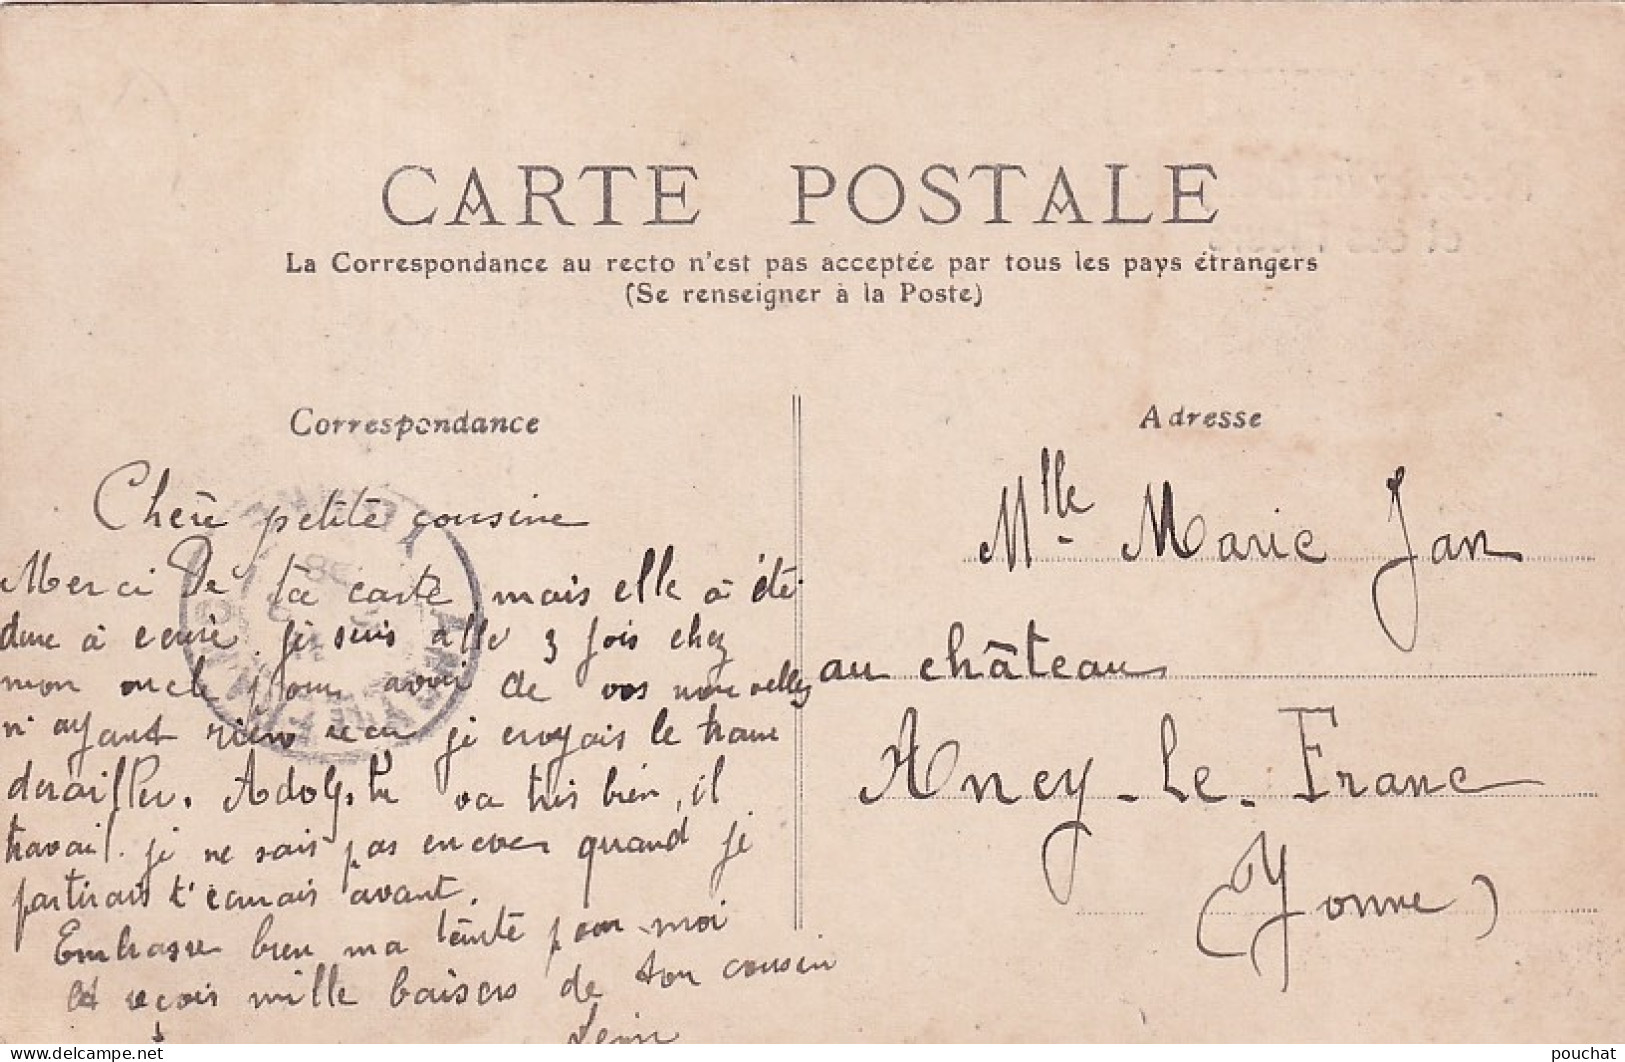 CARTE POSTALE
La Correspondance au recto n'est pas acceptée par tous les pays étrangers
(Se renseigner à la Poste)
Correspondance
Chère petite cousine
Merci De ta carte mais elle à été
dure à je suis allé 3 fois chez
mon oncle pour avoir de vos nouvelles
n'ayant rien recu je croyais le tram
derailler. Adolphe va très bien, il
travail. je ne sais pas encore quand je
partirais t'ecrirais avant.
Embrasse bien ma tante pour moi
et reçois mille baisers de ton cousin
Adresse
Mlle Marie Jan
au château
Ancy-le-Franc
(Yonne)
pouchat